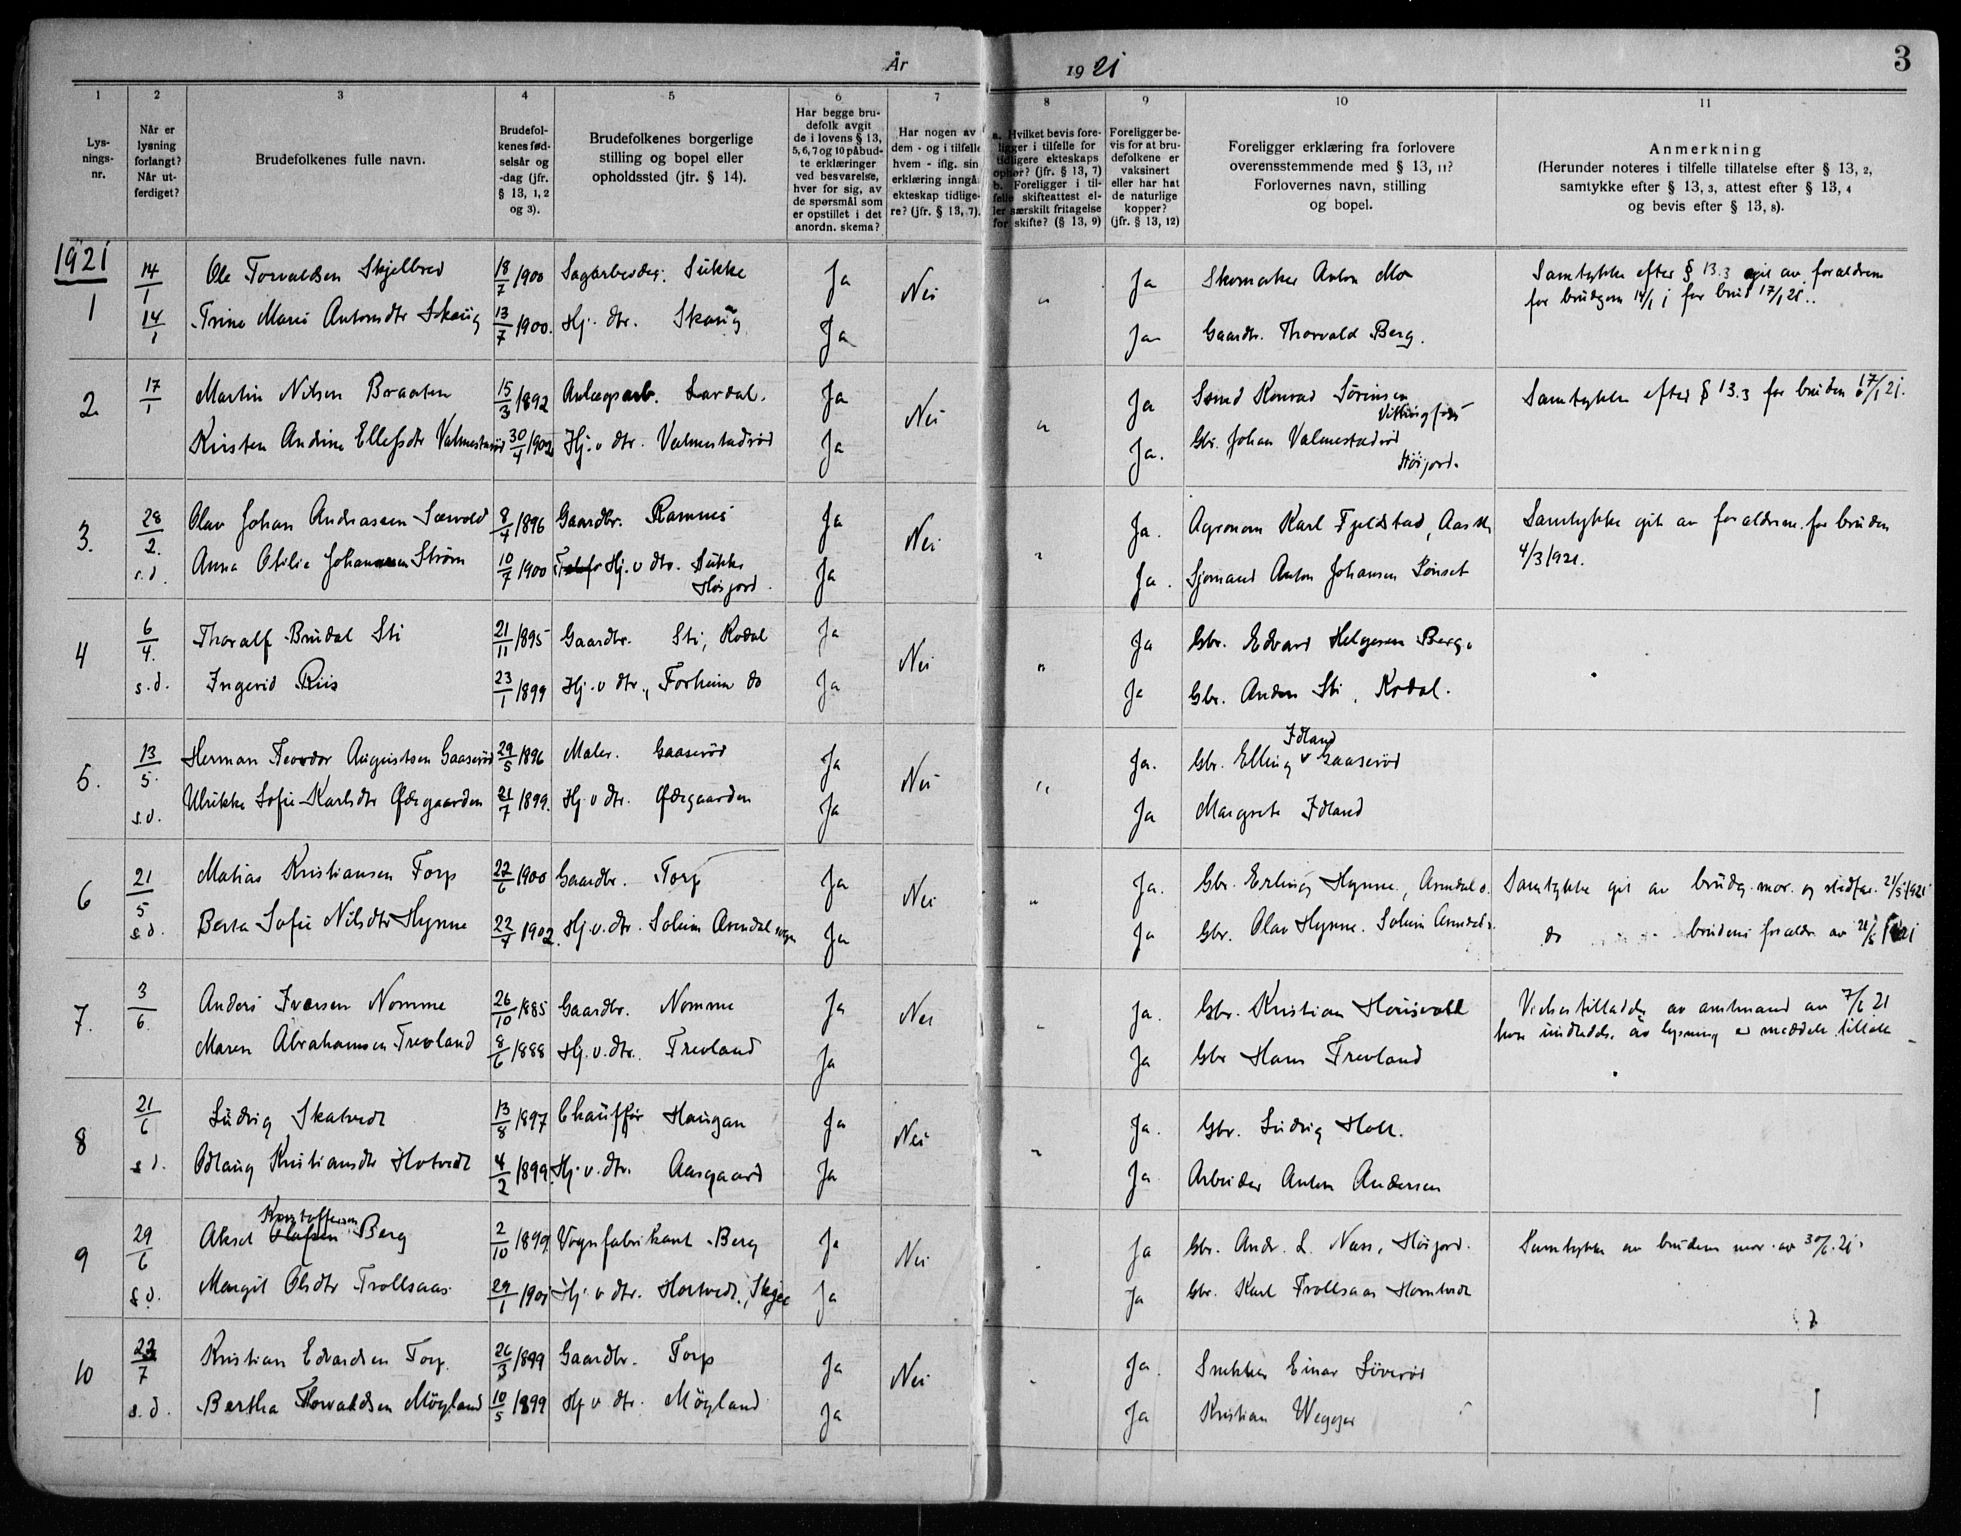 År 1921
3
1 2 3 4 5 6 7 8 9 10 11
Lys-
nings-
nr.
Når er
lysning
forlangt?
Når ut-
ferdiget?
Brudefolkenes fulle navn.
Brudefol-
kenes fød-
selsår og
-dag (jfr.
§ 13, 1, 2
og 3).
Brudefolkenes borgerlige
stilling og bopel eller
opholdssted (jfr. § 14).
Har begge bru-
defolk avgit
de i lovens § 13,
5, 6, 7 og 10 påbud-
te erklæringer
ved besvarelse,
hver for sig, av
de spørsmål som
er opstillet i det
anordn. skema?
Har nogen av
dem - og i tilfelle
hvem - iflg. sin
erklæring inngå
ekteskap tidlige-
re? (jfr. § 13, 7).
a. Hvilket bevis fore-
ligger i tilfelle for
tidligere ekteskaps
ophør? (jfr. § 13, 7)
b. Foreligger i til-
felle skifteattest el-
ler særskilt fritagelse
for skifte? (§ 13, 9)
Foreligger be-
vis for at bru-
defolkene er
vaksinert
eller har hat
de naturlige
kopper?
(jfr. § 13, 12)
Foreligger erklæring fra forlovere
overensstemmende med § 13, 11?
Forlovernes navn, stilling
og bopel.
Anmerkning
(Herunder noteres i tilfelle tillatelse efter § 13, 2,
samtykke efter § 13, 3, attest efter § 13, 4
og bevis efter § 13, 8).
1921
1 14/1 Ole Torvaldsen Skjelbred 18/7 1900 Sagarbeider. Sukke Ja Nei " Ja Skomaker Anton Mo Samtykke efter § 13.3 git av forældrene
for brudgom 14/1 i for brud 17/1 21..
14/1 Trine Marie Antonsdtr Skaug 13/7 1900. Hj. dtr. Skaug Ja Ja Gaardbr. Thorvald Berg.
2 17/1 Martin Nilsen Braaten 15/3 1892 Anlægsarb. Lardal. Ja Nei " Ja Smed Konrad Sörensen
Vittingfoss
Samtykke efter § 13.3 for bruden 17/1 21.
Kirsten Andrine Ellefsdtr Valmestadröd 30/4 1902 Hj. v dtr. Valmestadröd Ja Ja. Gbr. Johan Valmestadröd
Höijord.
3. 28/2. Olav Johan Andreassen Sævold 8/4 1896 Gaardbr. Ramnes Ja Nei " Ja. Agronom Karl Fjeldstad, Aas Samtykke git av forældrene for bruden
4/3 1921.
s.d. Anna Otilie Johannesen Ström 10/7 1900 Hj. v dtr. Sukke
Höijord.
Ja Ja. Sjömand Anton Johansen
4 6/4. Thoralf Brudal Sti 21/11 1895 Gaardbr. Sti, Kodal Ja Nei " Ja Gbr. Edvard Helgesen Berg.
s.d. Ingerid Riis 23/1 1899 Hj. v dtr., Forheim do Ja Ja Gbr. Anders Sti, Kodal.
5. 13/5. Herman Teodor Augustsen Gaaseröd 29/5 1896 Maler. Gaaseröd Ja Nei " Ja. Gbr. Elling Idland v Gaaseröd
s.d. Ulrikke Sofie Karlsdtr Öfsgaarden 21/7 1899. Hj. v dtr. Öfsgaarden Ja Ja Margrete Idland
6 21/5 Matias Kristiansen Torp 22/6 1900 Gaardbr. Torp Ja Nei " Ja. Gbr. Erling Hynne, Arendal s. Samtykke git av brudg. mor. og stedfar. 21/5 1921
s.d. Berta Sofie Nilsdtr Hynne 22/4 1902. Hj. v. dtr. Solum Arendal sogn Ja Ja Gbr. Olav Hynne. Solum Arendal s. do brudens forældr. av 21/5 1921
7. 3/6. Anders Iversen Nomme 26/10 1885 Gaardbr. Nomme Ja Nei " Ja. Gbr. Kristian
av amtmand av 7/6 21
Maren Abrahamsen Trevland 8/6 1888 Hj. v. dtr. Trevland Ja Ja Gbr Hans Trevland
8 21/6 Ludvig Skatvedt 13/8 1897 Chauffør Haugan Ja Nei " Ja. Gbr. Ludvig Holt.
s.d. Odlaug Kristiansdtr Hotvedt 4/2 1899. Hj. v. dtr. Aasgaard Ja Ja Arbeider Anton Andersen
9 29/6 Aksel Kristoffersen Berg 2/10 1899. Vognfabrikant Berg Ja Nei Ja Gbr. Andr. L. Næss, Höijord. Samtykke av brudens mor av 30/6.21.
s.d. Margit Olsdtr Trollsaas 29/1 1901 Hj. v dtr. Hortvedt., Skjee Ja Ja Gbr. Karl Trollsaas Horntvedt
10 23/7 Kristian Edvardsen Torp. 26/3 1899 Gaardbr. Torp Ja Nei Ja. Snekker Einar Löveröd
s.d. Bertha Thorvaldsen Möyland 10/5 1899 Hj v dtr. Möyland Ja Ja Kristian Wegger